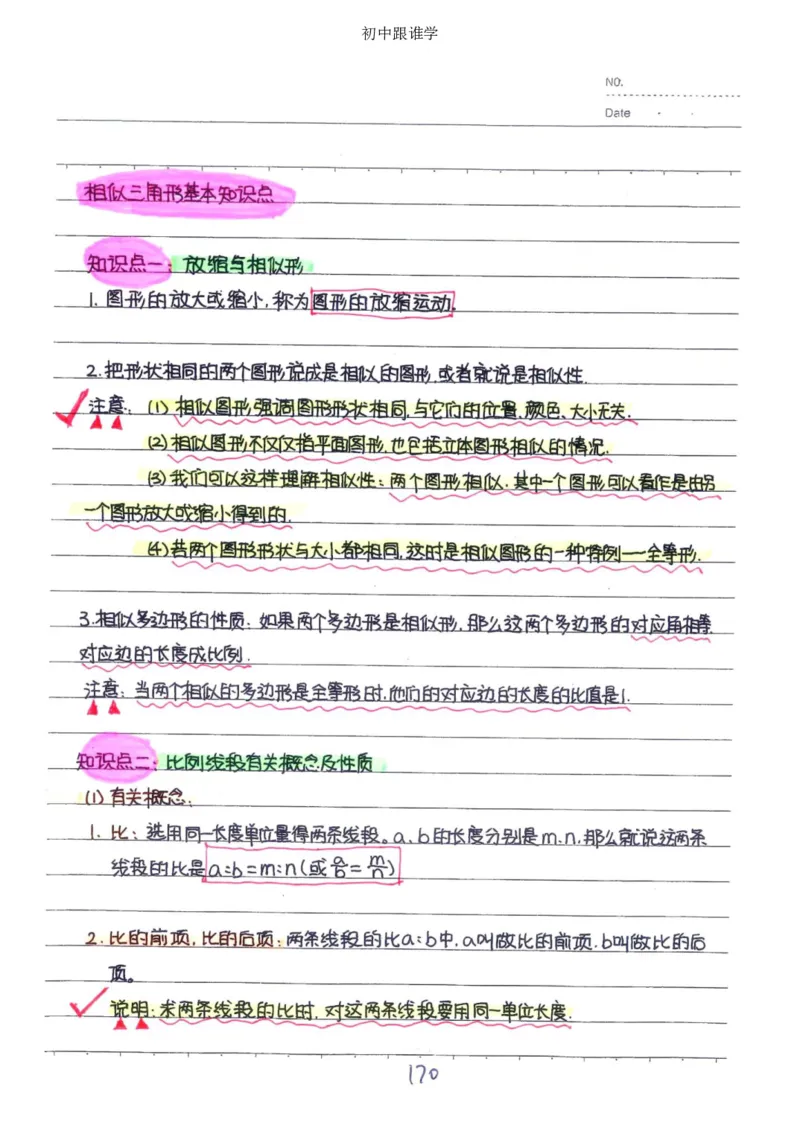 初中跟谁学
NO.
Date
相似三角形基本知识点
知识点一：放缩与相似形
1. 图形的放大或缩小,称为图形的放缩运动.
2.把形状相同的两个图形说成是相似的图形,或者就说是相似性.
注意：(1)相似图形强调图形形状相同,与它们的位置、颜色、大小无关.
(2)相似图形不仅仅指平面图形,也包括立体图形相似的情况.
(3)我们可以这样理解相似性：两个图形相似,其中一个图形可以看作是由另
一个图形放大或缩小得到的.
(4)若两个图形形状与大小都相同,这时是相似图形的一种特例——全等形.
3.相似多边形的性质：如果两个多边形是相似形,那么这两个多边形的对应角相等
对应边的长度成比例.
注意：当两个相似的多边形是全等形时,他们的对应边的长度的比值是1.
知识点二：比例线段有关概念及性质
(1)有关概念：
1. 比：选用同一长度单位量得两条线段。a、b的长度分别是m、n,那么就说这两条
线段的比是a:b=m:n(或a/b=m/n)
2.比的前项,比的后项：两条线段的比a:b中,a叫做比的前项,b叫做比的后
项。
说明：求两条线段的比时,对这两条线段要用同一单位长度.
170